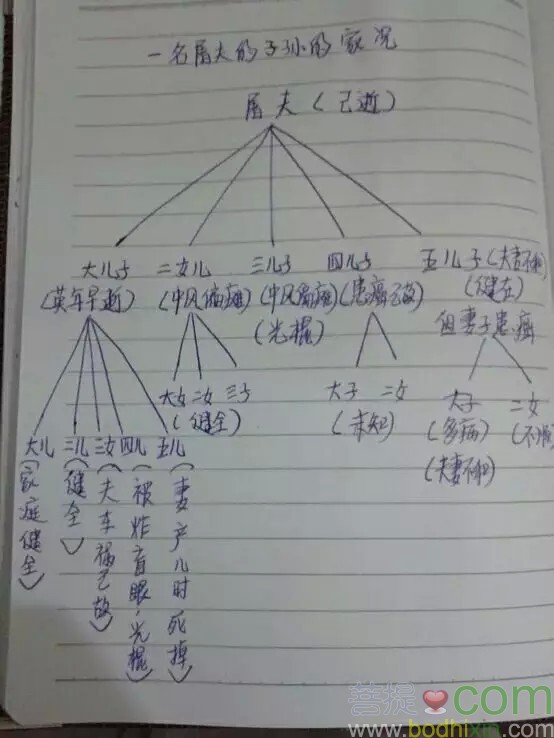 一名屠夫的子孙的家况
屠夫(已逝)
大儿子 二女儿 三儿子 四儿子 五儿子(夫妻不和)
(英年早逝) (中风偏瘫) (中风偏瘫) (患癌已故) (健在)
(光棍) 但妻子患癌
大女 二女 三子
(健全)
大子 二女
(未知)
大子 二女
(多病) (不顺
(夫妻不和)
大儿 二儿 三女 四儿 五儿
(家庭健全)
(健全)
(夫车祸已故)
(被炸盲眼,光棍)
(妻产儿时死掉)
菩提 com
www.bodhixin.com